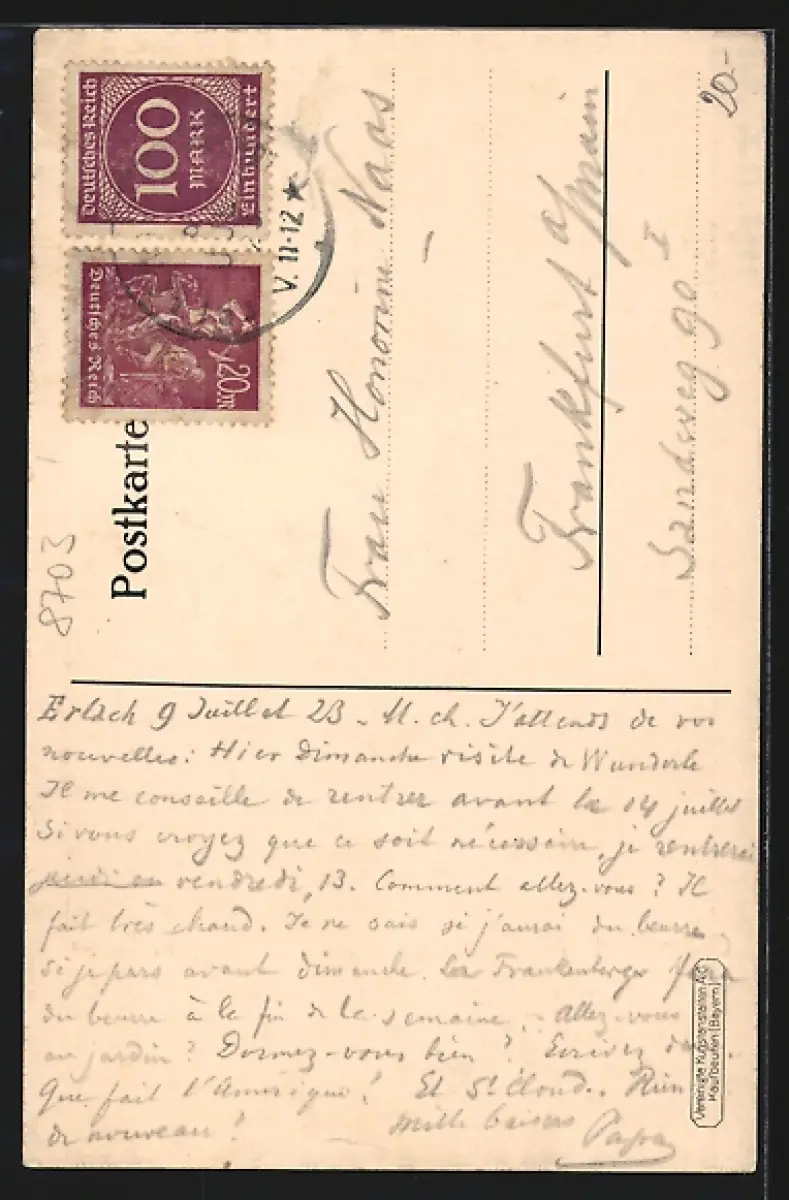 Deutsches Reich
100
MARK
Einhundert
Deutsches Reich
20M
V. 11-12 ★
Postkarte
20.-
8703
Frau Honorine Naas
Frankfurt a/Main
Sandweg 90 I
Erlach 9 Juillet 23 - M. ch. J'attends de vos
nouvelles: Hier Dimanche visite de Wunderle
Il me conseille de rentrer avant le 14 juillet
Si vous croyez que ce soit nécessaire, je rentrerai
jeudi ou vendredi, 13. Comment allez-vous? Il
fait très chaud. Je ne sais si j'aurai du beurre
si je pars avant dimanche. Les Frankenberger
du beurre à la fin de la semaine. - Allez-vous
au jardin? Dormez-vous bien? Ecrivez
Que fait l'Amérique? Et St Cloud. Rien
de nouveau?
Mille baisers
Papa
Vereinigte Kunstanstalten A.G.
Kaufbeuren (Bayern)